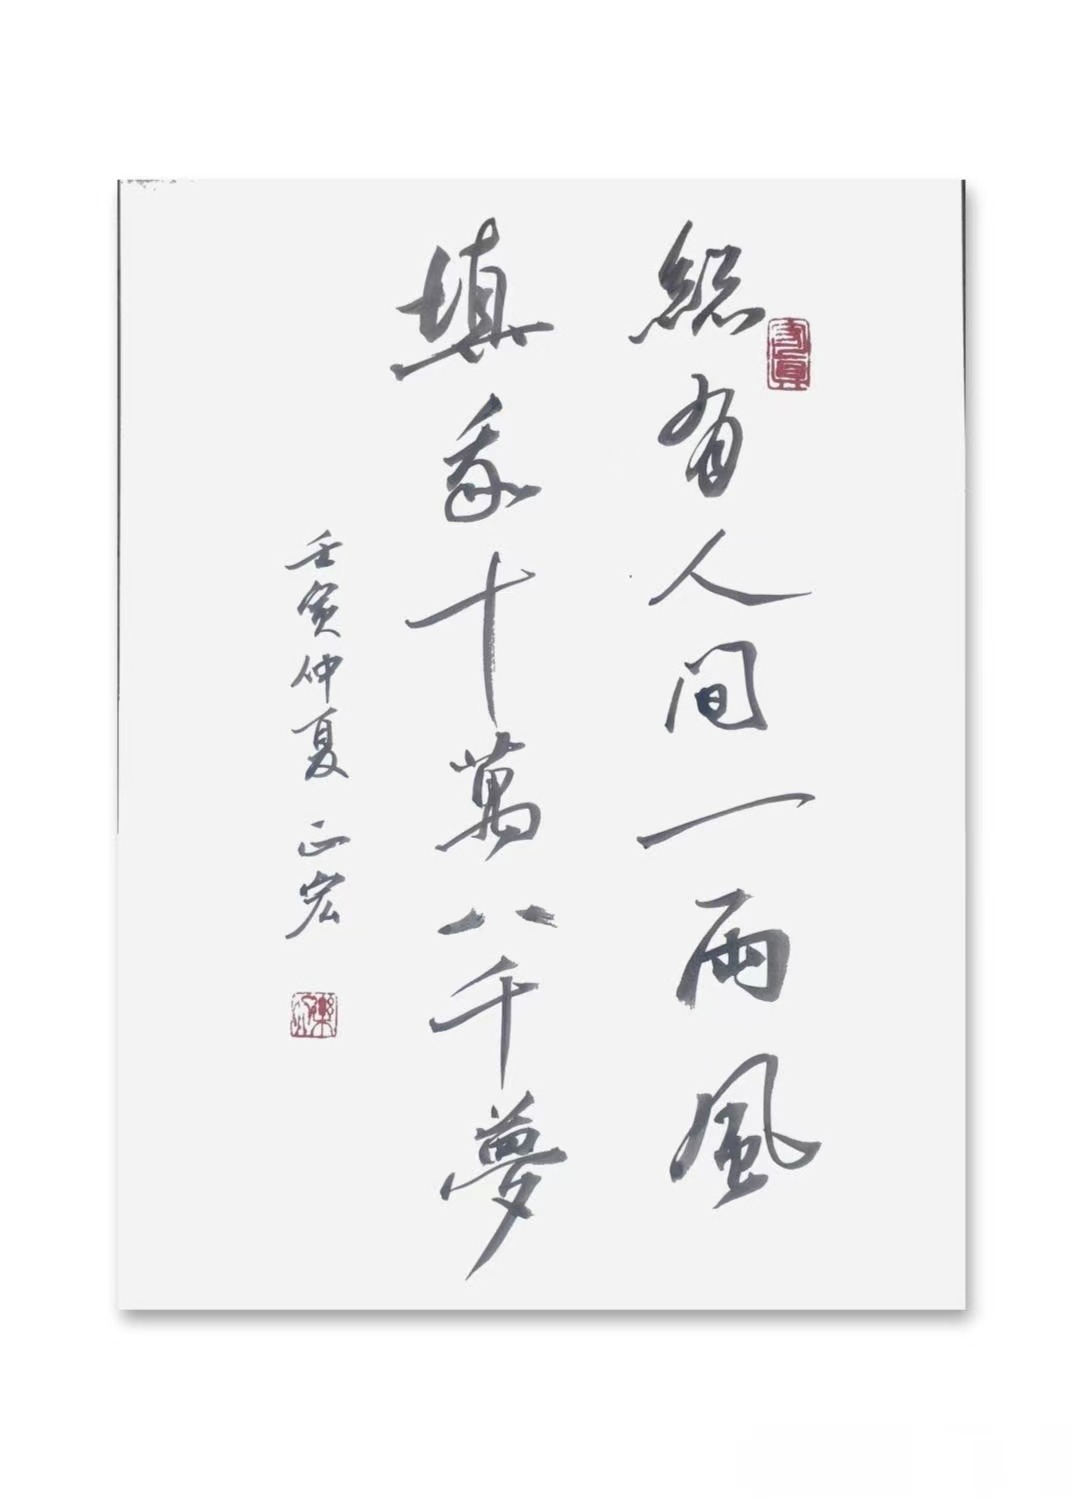 總有人间一両風
填我十萬八千夢
壬寅仲夏 正宏